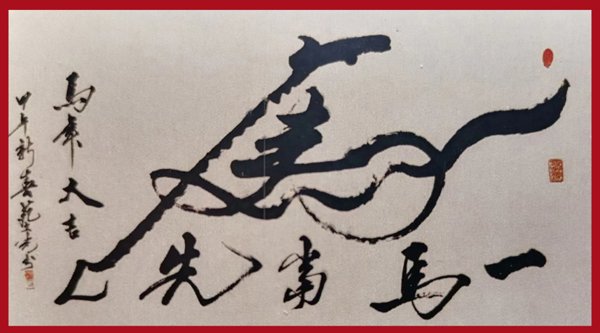 馬
一馬當先
馬年大吉
甲午新春